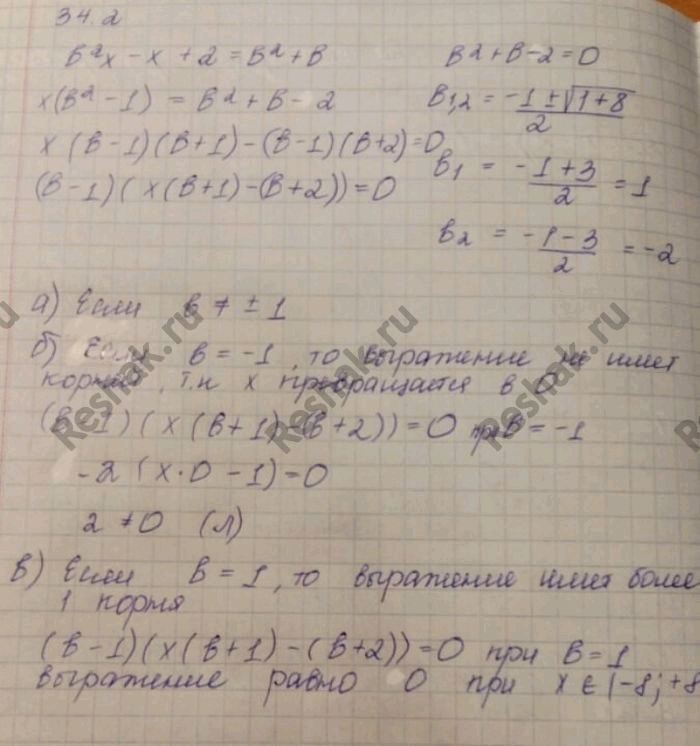 34.2
в²x - x + 2 = в² + в
x(в² - 1) = в² + в - 2
x(в-1)(в+1) - (в-1)(в+2) = 0
(в-1)(x(в+1) - (в+2)) = 0
в² + в - 2 = 0
в₁,₂ = (-1 ± √(1+8))/2
в₁ = (-1+3)/2 = 1
в₂ = (-1-3)/2 = -2
а) Если в ≠ ± 1
б) Если в = -1, то выражение не имет
корней, т.к x превращается в 0
(в-1)(x(в+1) - (в+2)) = 0 при в = -1
-2(x·0 - 1) = 0
2 ≠ 0 (л)
в) Если в = 1, то выражение имет более
1 корня
(в-1)(x(в+1) - (в+2)) = 0 при в = 1
выражение равно 0 при x ∈ (-8; +8
Reshak.ru
Reshak.ru
Reshak.ru